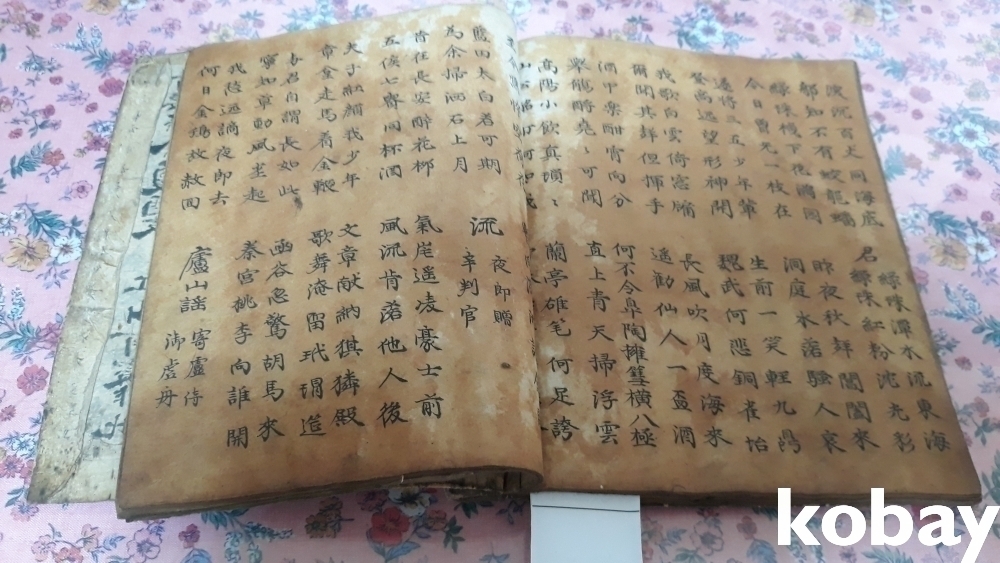 浪沉百丈同海底
那知不有蛟龍蟠
綠珠樓下花滿園
今日曾无一枝在
遂將三五少年輩
登高遠望形神開
我歌白雲倚窓牖
爾聞其聲但揮手
酒中樂酣宵向分
擧觴酹堯可聞
高陽小飲真瑣〻
山公酩酊何如我
綠珠潭水流東海
名綠珠紅粉沈光彩
昨夜秋聲閶闔來
洞庭水落騷人哀
生前一笑輕九鼎
魏武何悲銅雀怡
長風吹月度海來
遙勸仙人一盃酒
何不令皐陶擁篲橫八極
直上青天掃浮雲
蘭亭雄笔何足誇
藍田太白若可期
為余掃洒石上月
昔在長安醉花柳
五侯七貴同杯酒
夫子紅顔我少年
章臺走馬着金鞭
与君自謂長如此
寧知草動風塵起
我愁遠謫夜郎去
何日金鷄放赦回
流 夜郎贈
辛判官
氣岸遙凌豪士前
風流肯落他人後
文章献納猉獜殿
歌舞淹留玳瑁筵
函谷忽驚胡馬來
秦宮桃李向誰開
廬山謠 寄盧侍
御虛舟
kobay